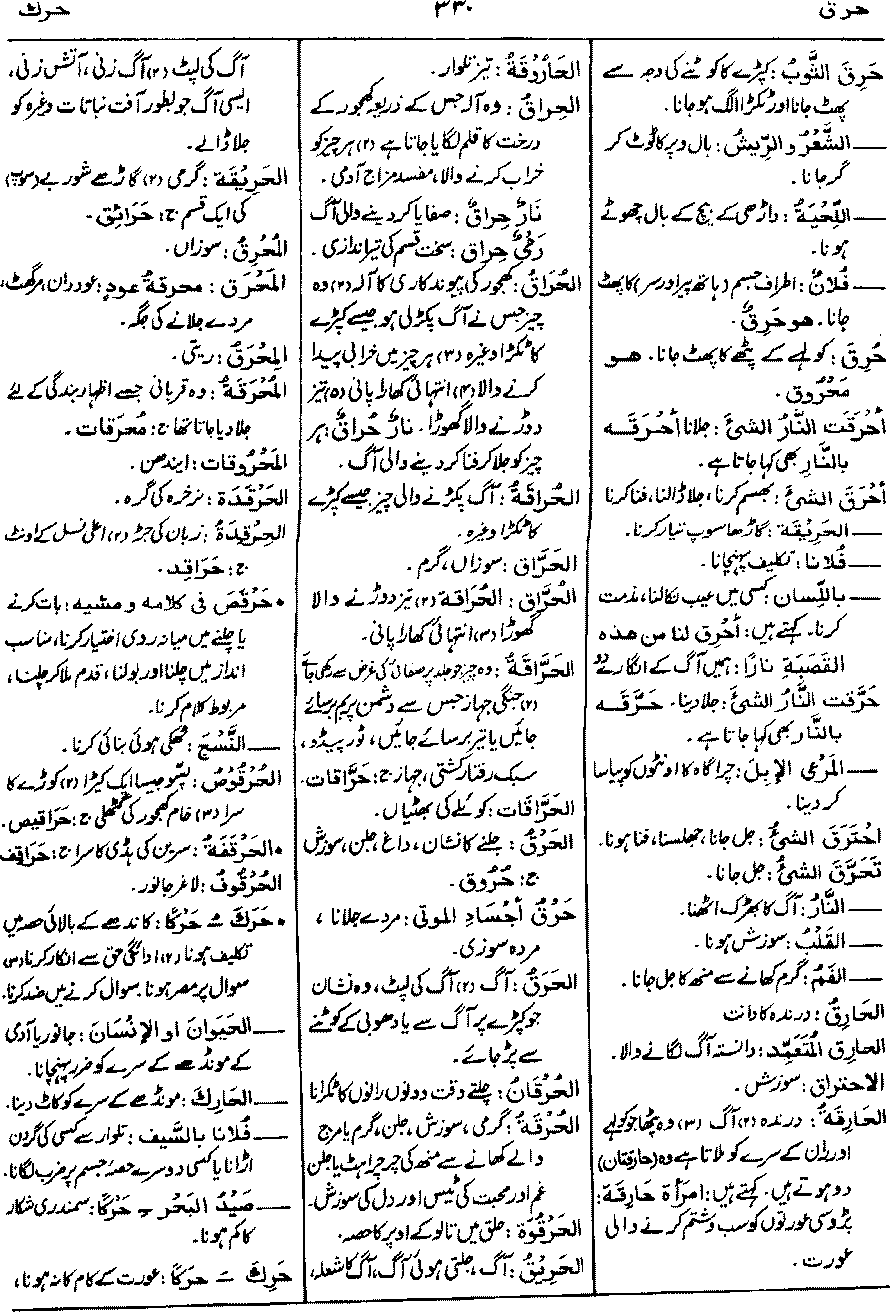 حرق ۳۳۰ حرک
حَرِقَ الثَّوبُ: کپڑے کا کوٹنے کی وجہ سے
پھٹ جانا اور ٹکڑا الگ ہو جانا۔
— الشَّعْرُ و الرِّيشُ: بال و پر کا ٹوٹ کر
گر جانا۔
— اللِّحْيَةُ: داڑھی کے بیچ کے بال چھوٹے
ہونا۔
— فُلانٌ: اطراف جسم (ہاتھ پیر اور سر) کا پھٹ
جانا۔ هو حَرِقٌ۔
حُرِقَ: کولہے کے پٹھے کا پھٹ جانا۔ هو
مَحْرُوق۔
أحْرَقَت النَّارُ الشئَ: جلانا أحْرَقَه
بالنَّارِ بھی کہا جاتا ہے۔
أحْرَقَ الشئَ: بھسم کرنا، جلا ڈالنا، فنا کرنا
— الحَرِيْقَة: گاڑھا سوپ تیار کرنا۔
— فُلانا: تکلیف پہنچانا۔
— باللِّسان: کسی میں عیب نکالنا، مذمت
کرنا۔ کہتے ہیں: أحْرِق لنا من هذه
القَصَبَةِ نارًا: ہمیں آگ کے انگارے دو
حَرَّقت النَّارُ الشئَ: جلا دینا۔ حَرَّقَه
بالنَّار بھی کہا جاتا ہے۔
— المَرْعى الإبِلَ: چراگاہ کا اونٹوں کو پیاسا
کر دینا۔
احْتَرَقَ الشئُ: جل جانا، جھلسنا، فنا ہونا۔
تَحَرَّقَ الشئُ: جل جانا۔
— النَّارُ: آگ کا بھڑک اٹھنا۔
— القَلْبُ: سوزش ہونا۔
— الفَمُ: گرم کھانے سے منھ کا جل جانا۔
الحَارِقُ: درندہ کا دانت
الحارِق المُتَعَمِّد: دانستہ آگ لگانے والا۔
الاحتراق: سوزش۔
الحَارِقَةُ: درندہ (۲) آگ (۳) وہ پٹھا جو کولہے
اور ران کے سرے کو ملاتا ہے وہ (حارقتان)
دو ہوتے ہیں۔ کہتے ہیں: امرَأة حَارِقَة:
پڑوسی عورتوں کو سب و شتم کرنے والی
عورت۔
الحَارُوقَةُ: تیز تلوار۔
الحِراقُ: وہ آلہ جس کے ذریعہ کھجور کے
درخت کا قلم لگایا جاتا ہے (۲) ہر چیز کو
خراب کرنے والا، مفسد مزاج آدمی۔
نَارٌ حِراقٌ: صفایا کر دینے والی آگ
رَمْيٌ حِراق: سخت قسم کی تیر اندازی۔
الحُرَاقُ: کھجور کی پیوند کاری کا آلہ (۲) وہ
چیز جس نے آگ پکڑ لی ہو جیسے کپڑے
کا ٹکڑا وغیرہ (۳) ہر چیز میں خرابی پیدا
کرنے والا (۴) انتہائی کھارا پانی (۵) تیز
دوڑنے والا گھوڑا۔ نارٌ حُراقٌ: ہر
چیز کو جلا کر فنا کر دینے والی آگ۔
الحُراقَةُ: آگ پکڑنے والی چیز جیسے کپڑے
کا ٹکڑا وغیرہ۔
الحَرَّاق: سوزاں، گرم۔
الحُرَّاق: الحُراقة (۲) تیز دوڑنے والا
گھوڑا (۳) انتہائی کھارا پانی۔
الحَرَّاقَةُ: وہ چیز جو جلد پر صفائی کی غرض سے رکھی جائے
(۲) جنگی جہاز جس سے دشمن پر بم برسائے
جائیں یا تیر برسائے جائیں، تورپیڈو،
سبک رفتار کشتی، جہاز ج: حَرَّاقات۔
الحَرَّاقَات: کوئلے کی بھٹیاں۔
الحَرْقُ: جلنے کا نشان، داغ، جلن، سوزش
ج: حُرُوق۔
حَرْقُ أجْسَادِ الموتى: مردے جلانا،
مردہ سوزی۔
الحَرَقُ: آگ (۲) آگ کی لپٹ، وہ نشان
جو کپڑے پر آگ سے یا دھوبی کے کوٹنے
سے پڑ جائے۔
الحُرْقَانُ: چلتے وقت دونوں رانوں کا ٹکرانا
الحُرْقَةُ: گرمی، سوزش، جلن، گرم یا مرچ
والے کھانے سے منھ کی چرچراہٹ یا جلن
غم اور محبت کی ٹیس اور دل کی سوزش۔
الحَرْقُوَة: حلق میں تالو کے اوپر کا حصہ۔
الحَرِيْقُ: آگ، جلتی ہوئی آگ، آگ کا شعلہ،
آگ کی لپٹ (۲) آگ زنی، آتش زنی،
ایسی آگ جو بطور آفت نباتات وغیرہ کو
جلا ڈالے۔
الحَرِيْقَة: گرمی (۲) گاڑھے شوربے (سوپ)
کی ایک قسم ج: حَرائق۔
المُحْرِقُ: سوزاں۔
المَحْرَق: محرقةُ عودٍ: عود دان، مرگھٹ،
مردے جلانے کی جگہ۔
المِحْرَقُ: ریتی۔
المُحْرَقَةُ: وہ قربانی جسے اظہار بندگی کے لئے
جلا دیا جاتا تھا ج: مُحرَقات۔
المَحْرُوقات: ایندھن۔
الحَرْقَدَة: نرخرہ کی گرہ۔
الحِرْقِدَةُ: زبان کی جڑ (۲) اعلی نسل کے اونٹ
ج: حَرَاقِد۔
• حَرْقَصَ في كلامه و مشيه: بات کرنے
یا چلنے میں میانہ روی اختیار کرنا، مناسب
انداز میں چلنا اور بولنا، قدم ملا کر چلنا،
مربوط کلام کرنا۔
— النَّسْجَ: ٹھکی ہوئی بنائی کرنا۔
الحُرْقُوْصُ: پسّو جیسا ایک کیڑا (۲) کوڑے کا
سرا (۳) خام کھجور کی گٹھلی ج: حَرَاقيص۔
• الحَرْقَفَةُ: سرین کی ہڈی کا سرا ج: حَرَاقِف
الحُرْقُوفُ: لاغر جانور۔
• حَرَكَ ـُ حَرْكًا: کاندھے کے بالائی حصہ میں
تکلیف ہونا (۲) ادائگی حق سے انکار کرنا (۳)
سوال پر مصر ہونا۔ سوال کرنے میں ضد کرنا۔
— الحَيَوانَ او الإنْسَانَ: جانور یا آدمی
کے مونڈھے کے سرے کو ضرر پہنچانا۔
— الحَارِكَ: مونڈھے کے سرے کو کاٹ دینا۔
— فُلانا بالسَّيف: تلوار سے کسی کی گردن
اڑانا یا کسی دوسرے حصۂ جسم پر ضرب لگانا۔
— صَيْدُ البَحْرِ ـِ حَرْكًا: سمندری شکار
کا کم ہونا۔
حَرِكَ ـَ حَرَكًا: عورت کے کام کا نہ ہونا،